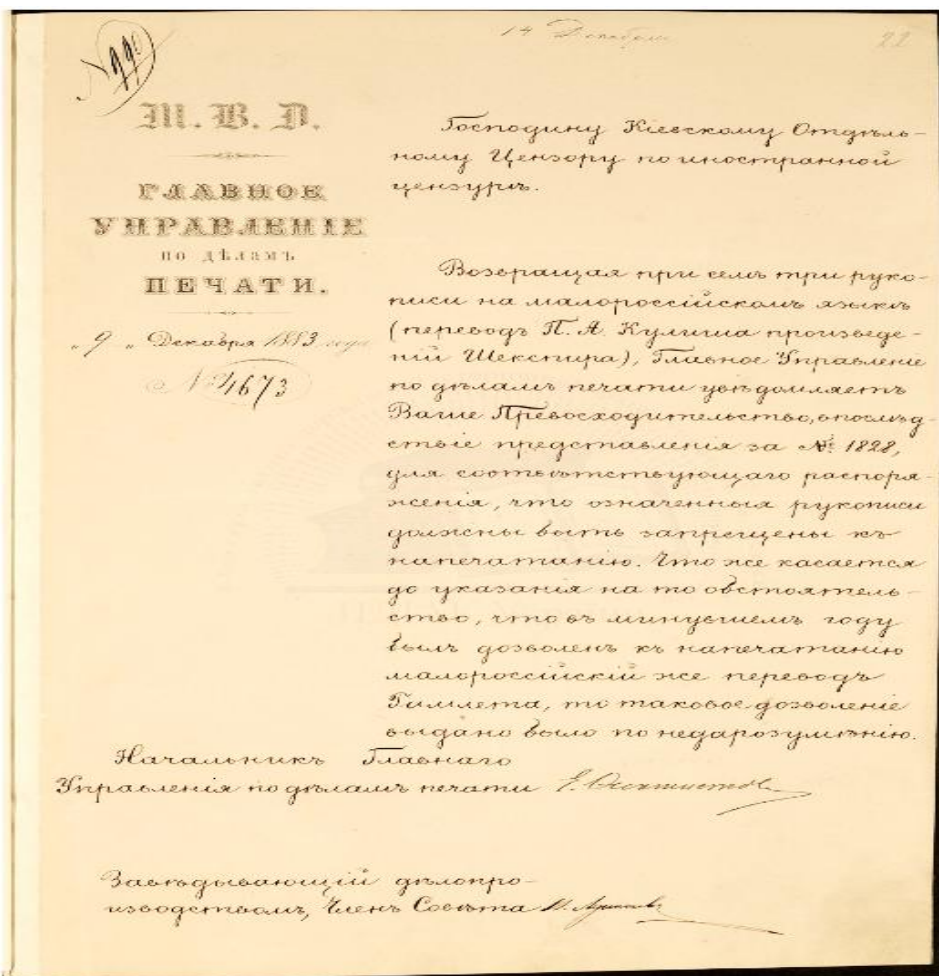 14 Декабря
22
N 990
М. В. Д.
ГЛАВНОЕ
УПРАВЛЕНІЕ
ПО ДѢЛАМЪ
ПЕЧАТИ.
„ 9 „ Декабря 1883 года
№ 4673
Господину Кіевскому Отдѣль-
ному Цензору по иностранной
цензурѣ.
Возвращая при семъ три руко-
писи на малороссійскомъ языкѣ
(переводъ П. А. Кулиша произведе-
ній Шекспира), Главное Управленіе
по дѣламъ печати увѣдомляетъ
Ваше Превосходительство, впослѣд-
ствіе представленія за № 1828,
для соотвѣтствующаго распоря-
женія, что означенныя рукописи
должны быть запрещены къ
напечатанію. Что же касается
до указанія на то обстоятель-
ство, что въ минувшемъ году
былъ дозволенъ къ напечатанію
малороссійскій же переводъ
Гамлета, то таковое дозволеніе
выдано было по недаразумѣнію.
Начальникъ Главнаго
Управленія по дѣламъ печати Е. Феоктистовъ
Завѣдывающій дѣлопро-
изводствомъ, Членъ Совѣта